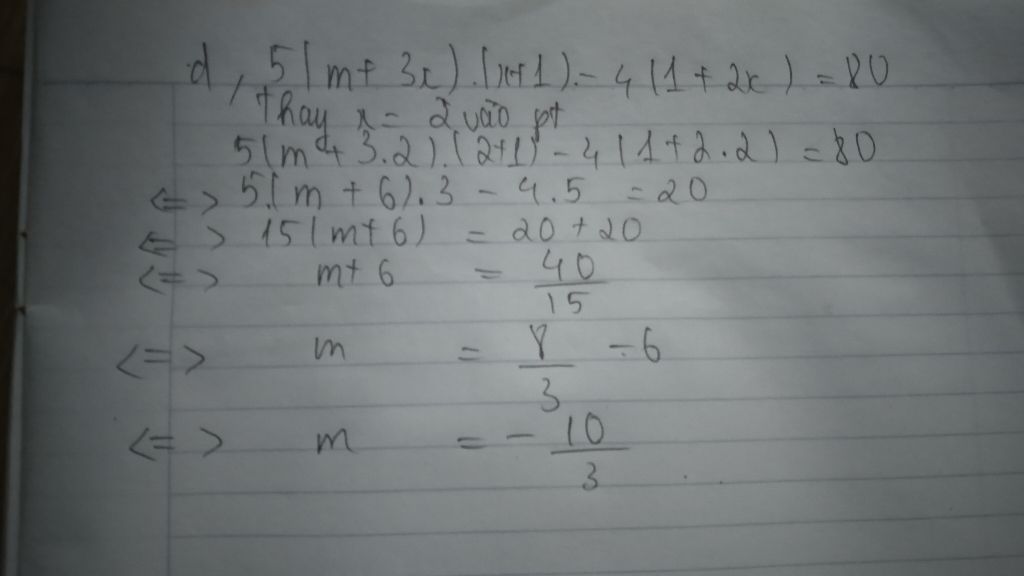 d, 5(m+ 3x).(x+1)- 4(1+2x) = 80
thay x = 2 vào pt
5(m + 3.2).(2+1) - 4(1+2.2) = 80
<=> 5.(m + 6).3 - 4.5 = 20
<=> 15(m+6) = 20+20
<=> m+6 = 40/15
<=> m = 8/3 - 6
<=> m = - 10/3